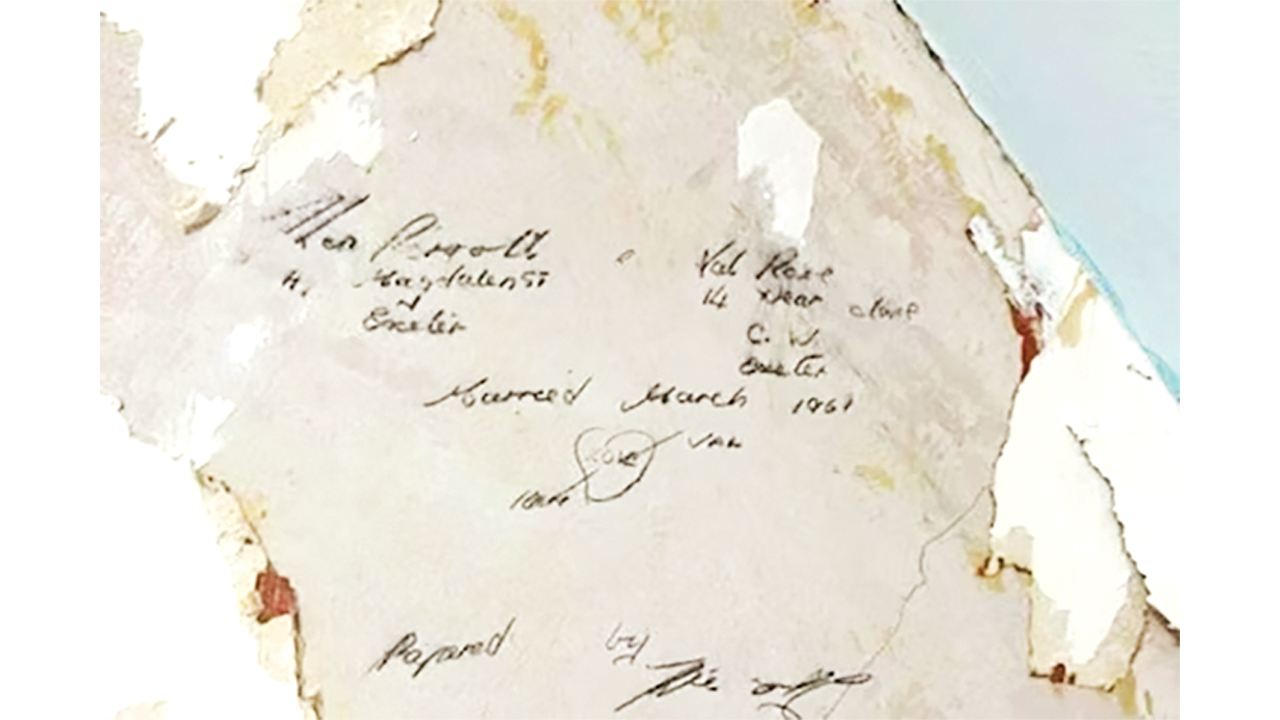 Ken Parrott & Val Rose
4, Magdalen St 14 Wear Close
Exeter C. W.
Exeter
Married March 1961
LOVE VAL
KEN
Papered by